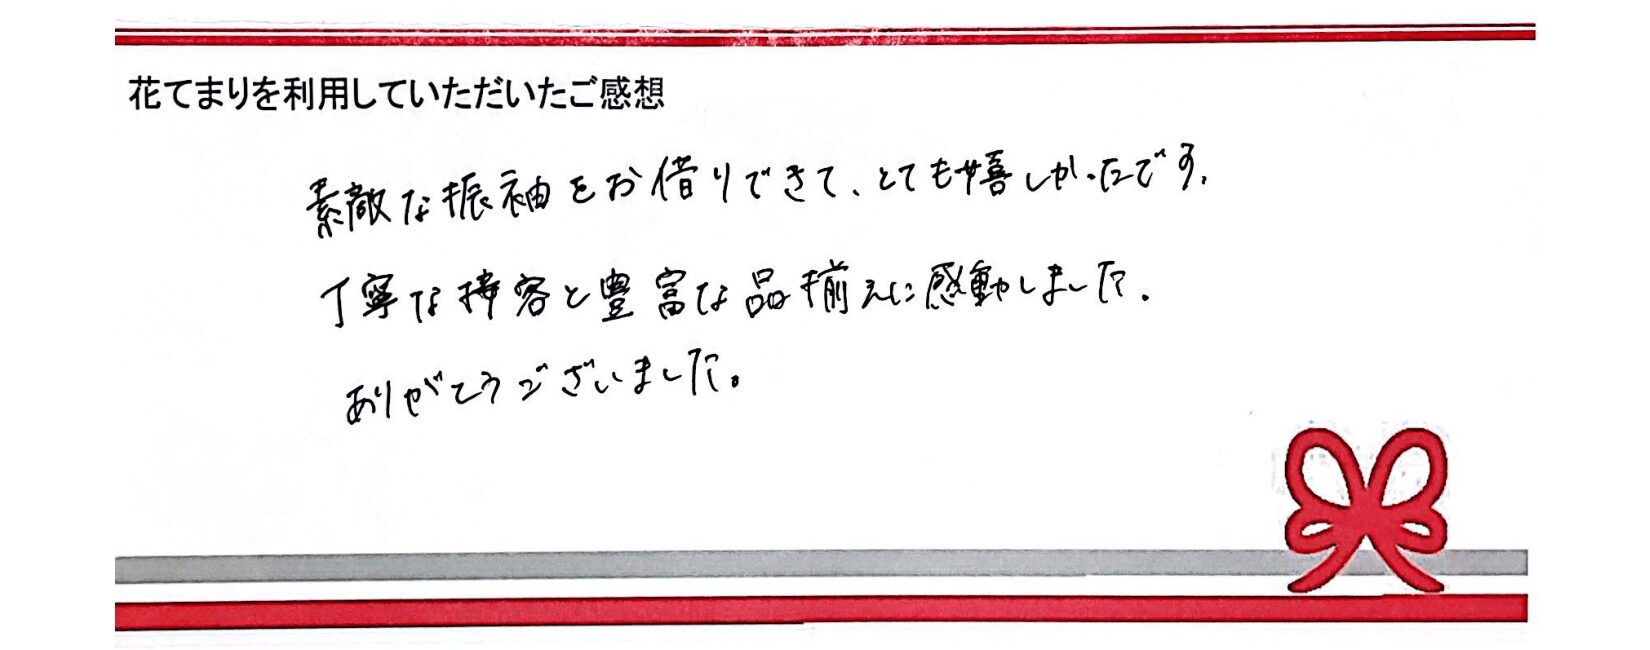 花てまりを利用していただいたご感想
素敵な振袖をお借りできて、とても嬉しかったです。
丁寧な接客と豊富な品揃えに感動しました。
ありがとうございました。